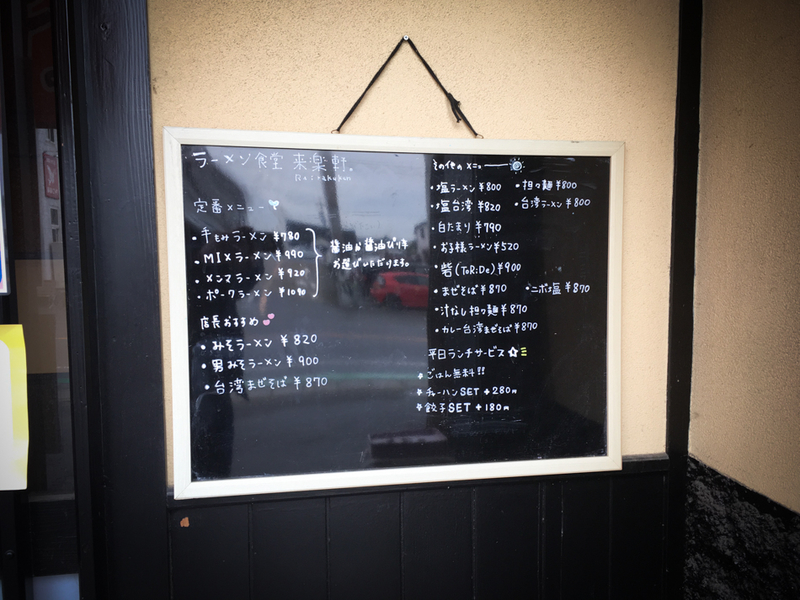 ラーメン食堂 来楽軒。
Rairakuken
定番メニュー
・手もみラーメン ¥780
・MIXラーメン ¥990
・メンマラーメン ¥920
・ポークラーメン ¥1090
醤油か醤油ぴり辛
お選びいただけます。
店長おすすめ
・みそラーメン ¥820
・男みそラーメン ¥900
・台湾まぜそば ¥870
その他のメニュー
・塩ラーメン ¥800 ・担々麺 ¥800
・塩台湾 ¥820 ・台湾ラーメン ¥800
・白たまり ¥790
・お子様ラーメン ¥520
・砦(ToRiDe) ¥900
・まぜそば ¥870 ・ニボ塩 ¥870
・汁なし担々麺 ¥870
・カレー台湾まぜそば ¥870
平日ランチサービス
ごはん無料!!
チャーハンSET +280円
餃子SET +180円